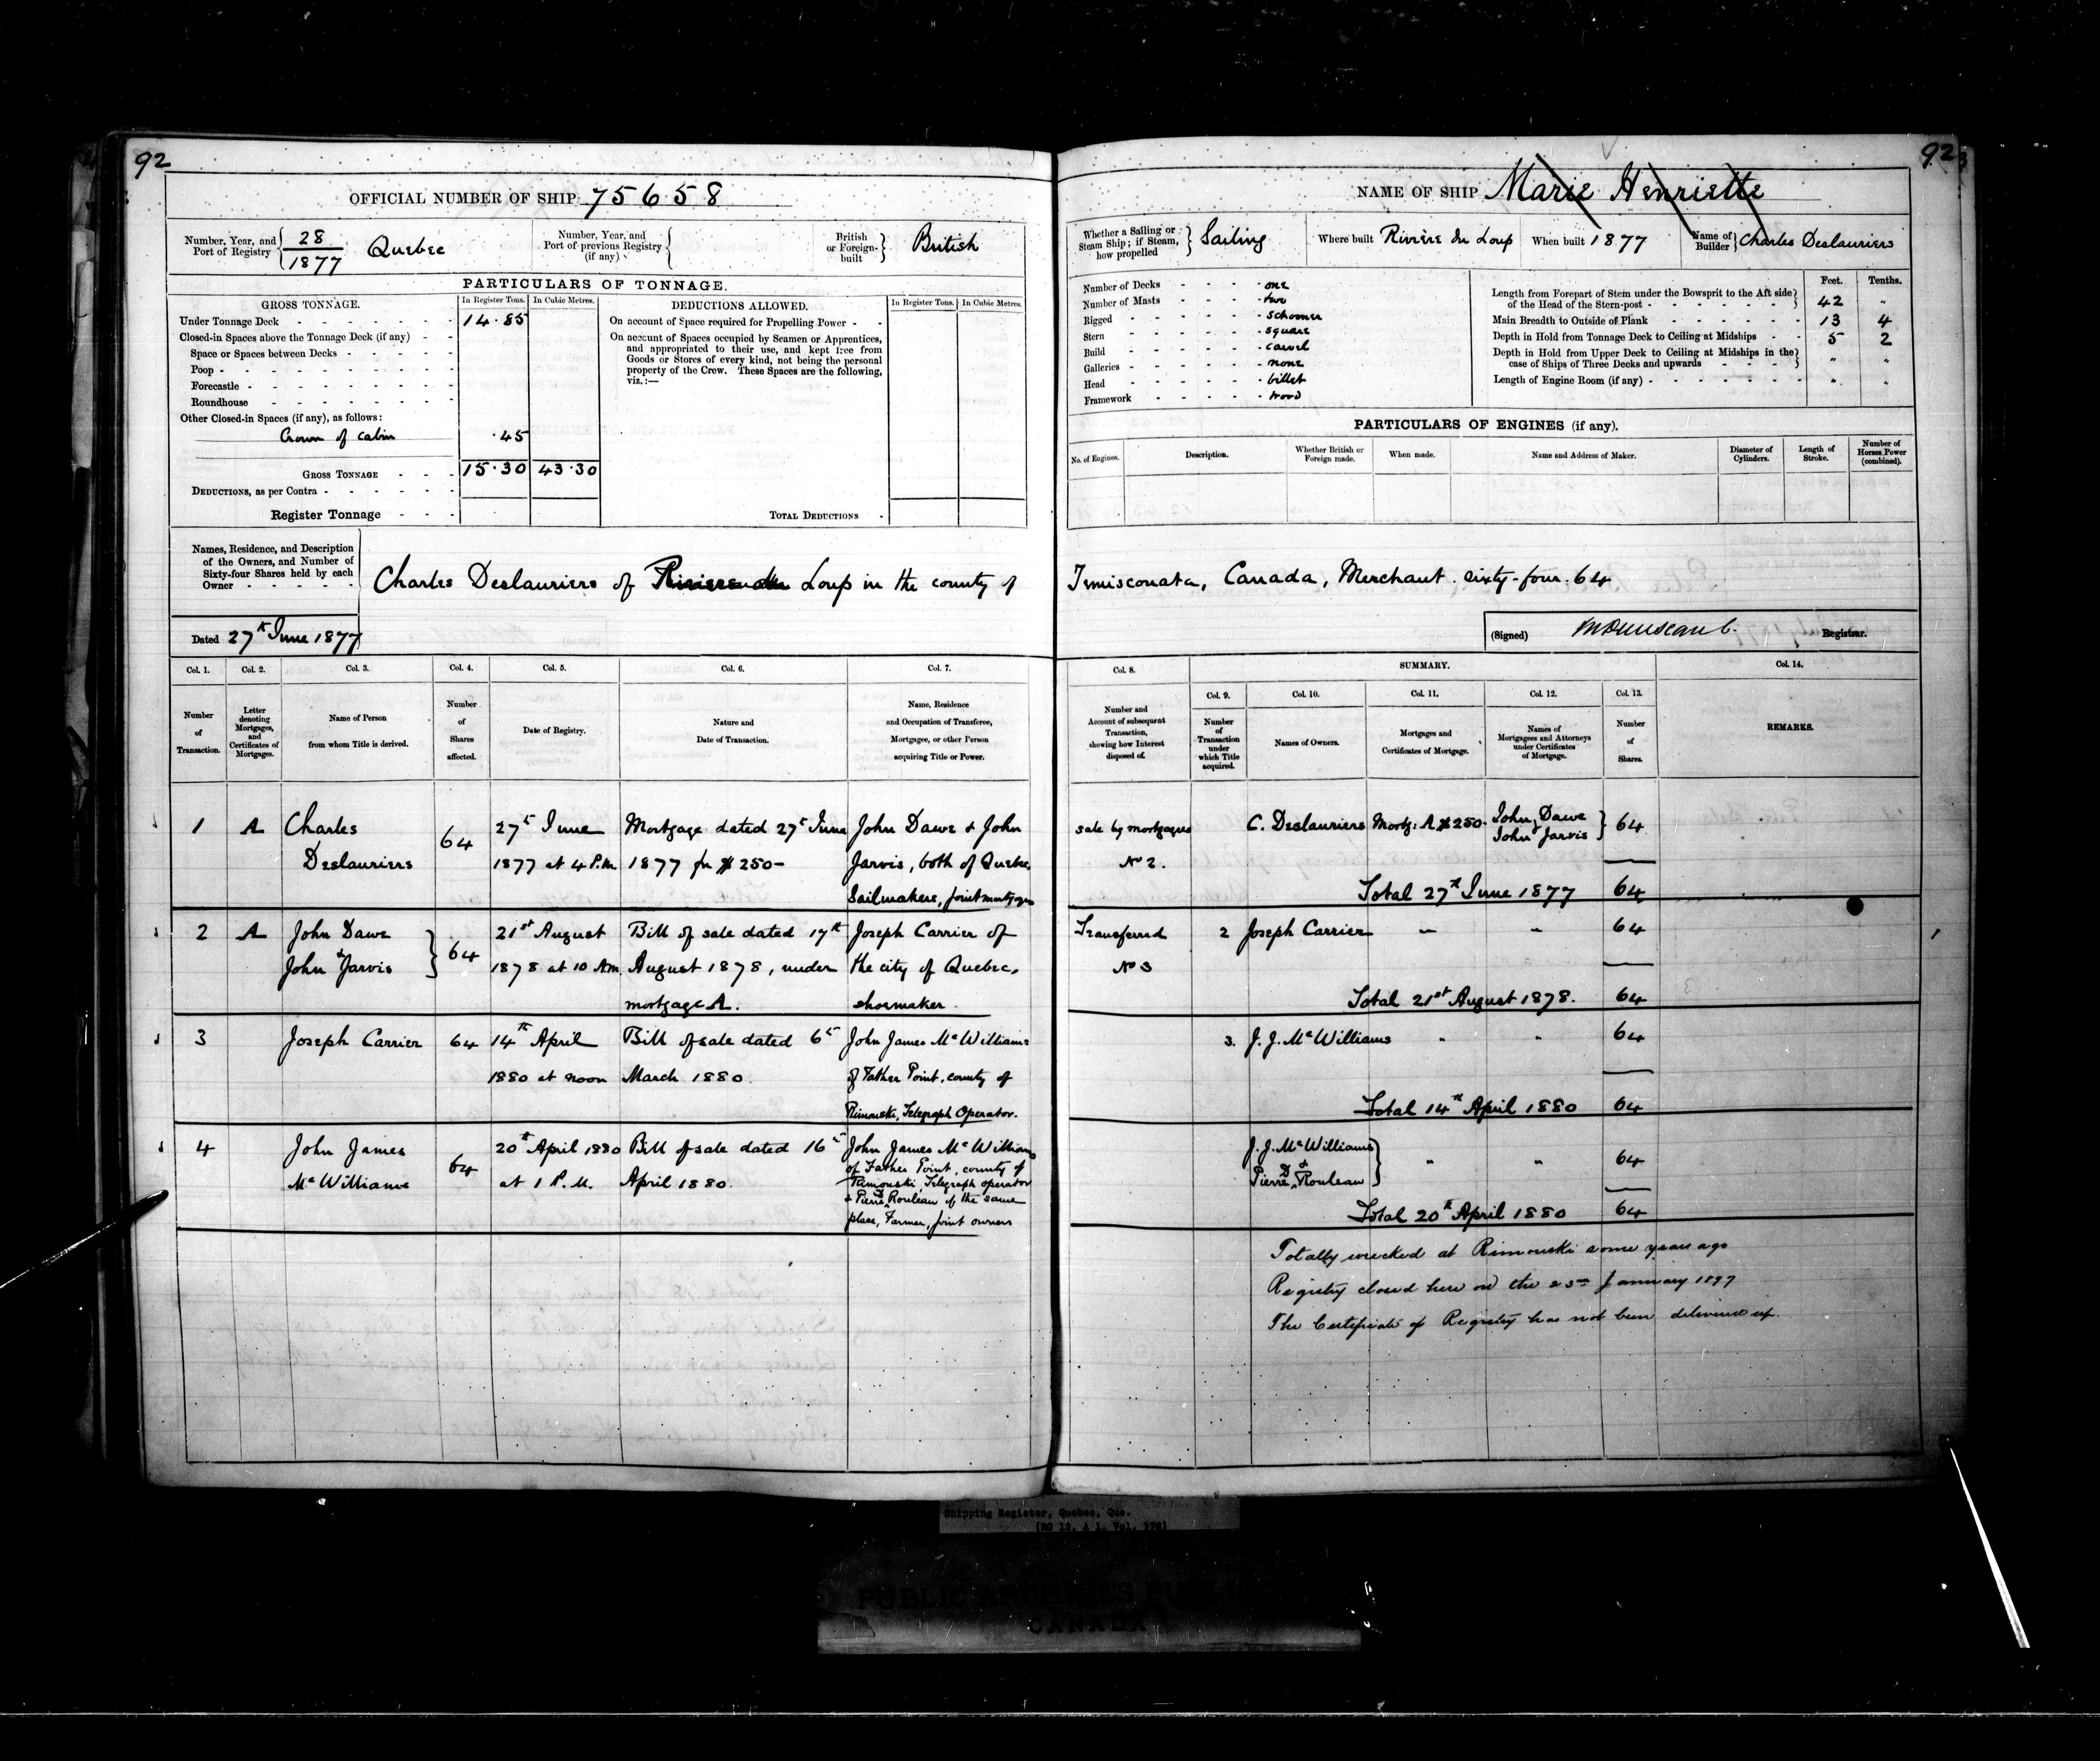 92
OFFICIAL NUMBER OF SHIP 75658
Number, Year, and Port of Registry { 28/1877 Quebec
Number, Year, and Port of previous Registry (if any) {
British or Foreign-built } British
PARTICULARS OF TONNAGE.
GROSS TONNAGE. In Register Tons. In Cubic Metres.
Under Tonnage Deck 14.85
Closed-in Spaces above the Tonnage Deck (if any)
Space or Spaces between Decks
Poop
Forecastle
Roundhouse
Other Closed-in Spaces (if any), as follows:
Crown of cabin .45
GROSS TONNAGE 15.30 43.30
DEDUCTIONS, as per Contra
Register Tonnage
DEDUCTIONS ALLOWED. In Register Tons. In Cubic Metres.
On account of Space required for Propelling Power
On account of Spaces occupied by Seamen or Apprentices,
and appropriated to their use, and kept free from
Goods or Stores of every kind, not being the personal
property of the Crew. These Spaces are the following,
viz.:—
TOTAL DEDUCTIONS
Names, Residence, and Description
of the Owners, and Number of
Sixty-four Shares held by each
Owner
Charles Deslauriers of Riviere du Loup in the county of
Dated 27th June 1877
Col. 1. Col. 2. Col. 3. Col. 4. Col. 5. Col. 6. Col. 7.
Number of Transaction.
Letter denoting Mortgages, and Certificates of Mortgages.
Name of Person from whom Title is derived.
Number of Shares affected.
Date of Registry.
Nature and Date of Transaction.
Name, Residence and Occupation of Transferee, Mortgagee, or other Person acquiring Title or Power.
1 A Charles 64 27th June Mortgage dated 27th June John Dawe & John
Deslauriers 1877 at 4 P.M. 1877 for $250- Jarvis, both of Quebec,
Sailmakers, joint mortgagees
2 A John Dawe & } 64 21st August Bill of sale dated 17th Joseph Carrier of
John Jarvis 1878 at 10 A.M. August 1878, under the city of Quebec,
mortgage A. shoemaker.
3 Joseph Carrier 64 14th April Bill of sale dated 6th John James McWilliams
1880 at noon March 1880. of Father Point, county of
Rimouski, Telegraph Operator.
4 John James 64 20th April 1880 Bill of sale dated 16th John James McWilliams
of Father Point, county of
McWilliams at 1 P.M. April 1880. Rimouski Telegraph operator
& Pierre D Rouleau of the same
place, Farmer, joint owners
92
NAME OF SHIP Marie Henriette
Whether a Sailing or Steam Ship; if Steam, how propelled } Sailing
Where built Rivière du Loup
When built 1877
Name of Builder } Charles Deslauriers
Number of Decks one
Number of Masts two
Rigged schooner
Stern square
Build carvel
Galleries none
Head billet
Framework wood
Feet. Tenths.
Length from Forepart of Stem under the Bowsprit to the Aft side
of the Head of the Stern-post 42 "
Main Breadth to Outside of Plank 13 4
Depth in Hold from Tonnage Deck to Ceiling at Midships 5 2
Depth in Hold from Upper Deck to Ceiling at Midships in the
case of Ships of Three Decks and upwards " "
Length of Engine Room (if any) " "
PARTICULARS OF ENGINES (if any).
No. of Engines. Description. Whether British or Foreign made. When made. Name and Address of Maker. Diameter of Cylinders. Length of Stroke. Number of Horses Power (combined).
Temisconata, Canada, Merchant. sixty-four. 64
(Signed) Registrar.
Col. 8. SUMMARY. Col. 14.
Col. 9. Col. 10. Col. 11. Col. 12. Col. 13.
Number and Account of subsequent Transaction, showing how Interest disposed of.
Number of Transaction under which Title acquired.
Names of Owners.
Mortgages and Certificates of Mortgage.
Names of Mortgagees and Attorneys under Certificates of Mortgage.
Number of Shares.
REMARKS.
sale by mortgagees C. Deslauriers Mortg: A $250. John Dawe } 64
John Jarvis
No 2.
Total 27th June 1877 64
Transferred 2 Joseph Carrier — — 64
No 3
Total 21st August 1878. 64
3. J. J. McWilliams " " 64
Total 14th April 1880 64
J. J. McWilliams } " " 64
& Pierre D Rouleau
Total 20th April 1880 64
Totally wrecked at Rimouski some years ago
Registry closed here on the 23rd January 1897
The Certificate of Registry has not been delivered up.
Shipping Register, Quebec, Que.
(RG 12, A 1, Vol. 176)
PUBLIC ARCHIVES
CANADA